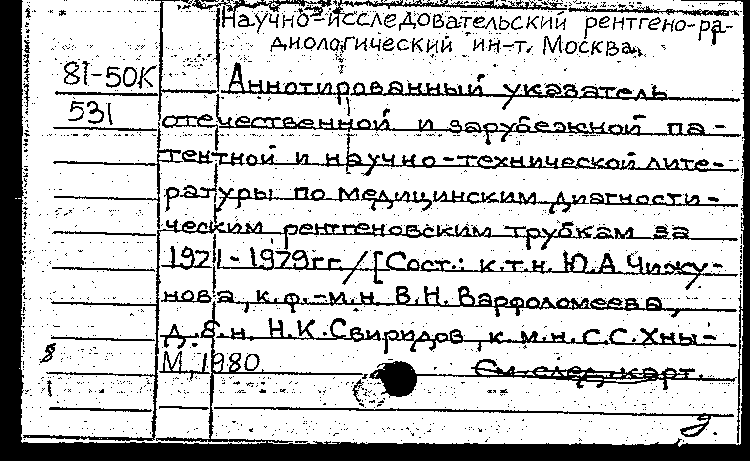 Научно-исследовательский рентгено-ра-
диологический ин-т. Москва.
81-50К Аннотированный указатель
531 отечественной и зарубежной па-
тентной и научно-технической лите-
ратуры по медицинским диагности-
ческим рентгеновским трубкам за
1971-1979гг. / [Сост.: к.т.н. Ю.А Чижу-
нова, к.ф.-м.н. В.Н. Варфоломеева,
д.б.н. Н.К. Свиридов, к.м.н. С.С. Хны-
М, 1980. См. след. карт.